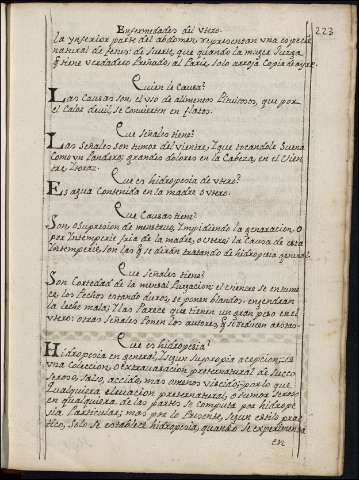 Enfermedades del Vtero.
223
la ynferior parte del abdomen, representan una especie
natural de fetus de suerte, que quando la muger Juzga,
q̃ tiene verdadero Preñado, al Parir, solo arroja Copia de ayre.
Quien le Causa?
Las Causas son, el vso de alimentos Pituitosos, que por
el Calor devil, se Convierten en flatos.
Que Señales tiene?
Las Señales son tumor del vientre, Y que tocandole Suena
Como un Pandero; grandes dolores en la Cabeza, en el vien-
tre, Y toraz.
Que es hidropesia de vtero?
Es agua Contenida en la madre o vtero.
Que Causas tiene?
Son, o Supresion de menstruo, Impidiendo la generacion, o
por Intemperie fria de la madre, o vtero; la Causa de esta
Intemperie, son las q̃ se dirán tratando de hidropesia general.
Que Señales tiene?
Son Cortedad de la mensal Purgacion: el vientre se entume-
ce, los Pechos estando duros, se ponen blandos, engendran
la leche mala; Y las Parece que tienen un gran peso en el
vtero: otras Señales Ponen los autores, q̃ se reducen a estas.
Que es hidropesia?
Hidropesia en general, Y segun su propia acepcion; es
una Coleccion, o extravasacion preternatural de Succo
Seroso, Salso, accido, mas o menos viscido; por lo que
Qualquiera elevacion preternatural, o tumor Seroso
en qualquiera de las partes se Computa por hidrope-
sia Particular; mas por lo Presente, Segun estilo prac-
tico, Solo se establece hidropesia, quando se experimenta
en